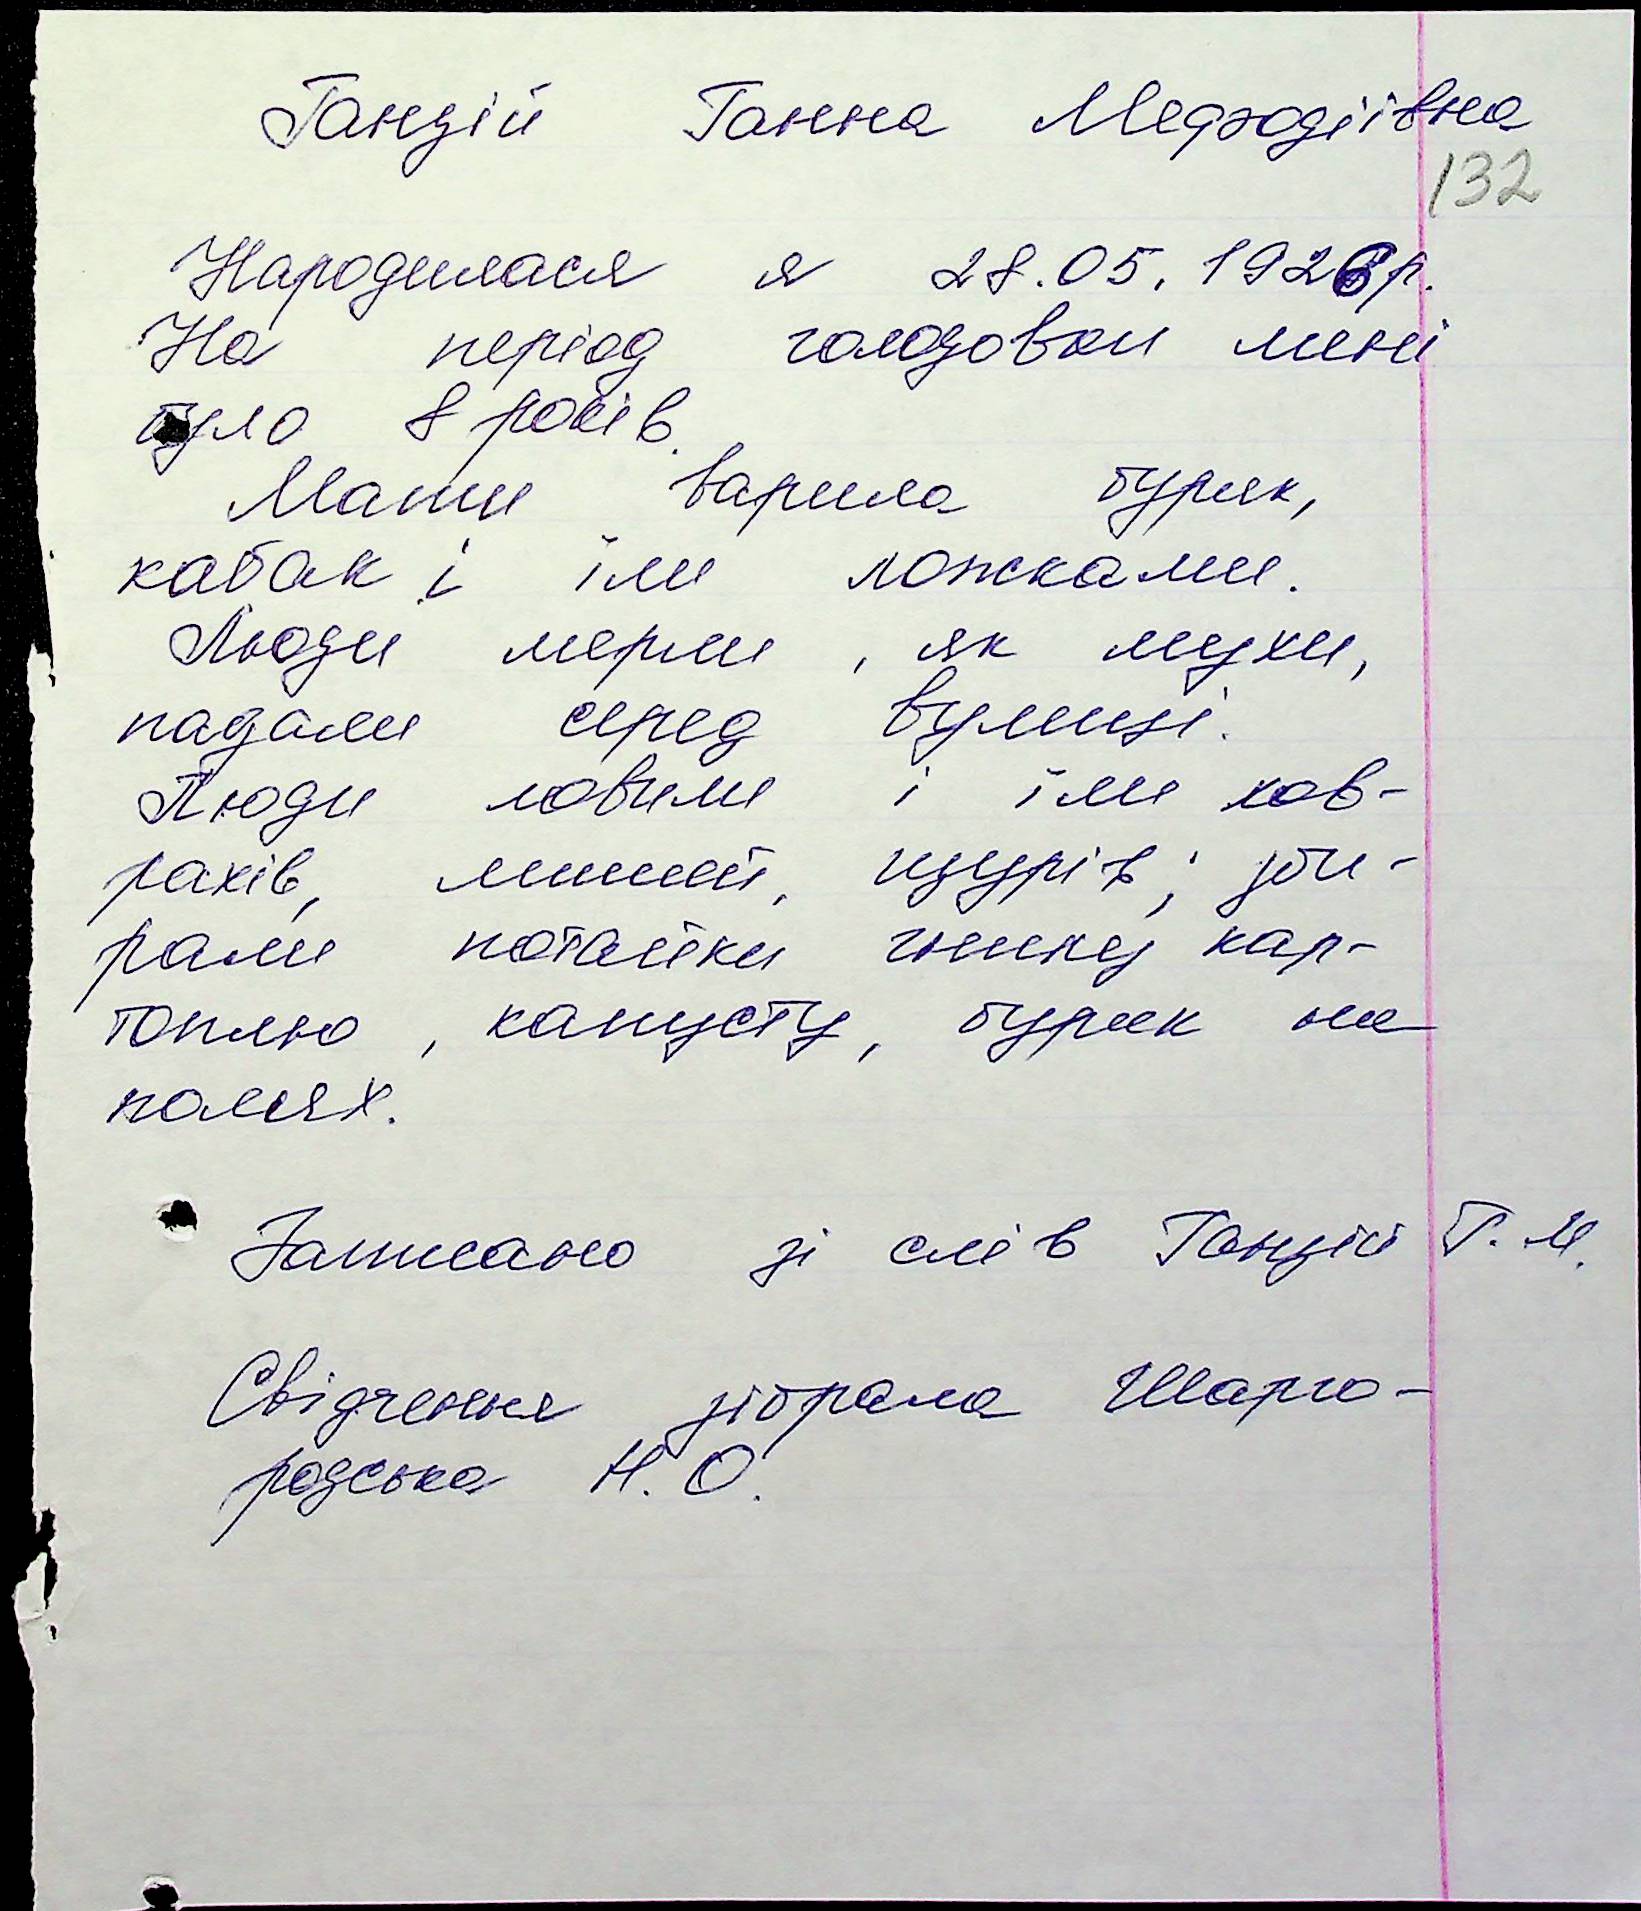 Ганзій Ганна Мефодіївна
132
Народилася я 28.05.1926р.
На період голодовки мені
було 8 років.
Мати варила буряк,
кабак і їли ложками.
Люди мерли, як мухи,
падали серед вулиці.
Люди ловили і їли хов-
рахів, мишей, щурів; зби-
рали потайки гнилу кар-
топлю, капусту, буряк на
полях.
Записано зі слів Ганзій Г. М.
Свідчення зібрала Шарго-
родська Н. О.